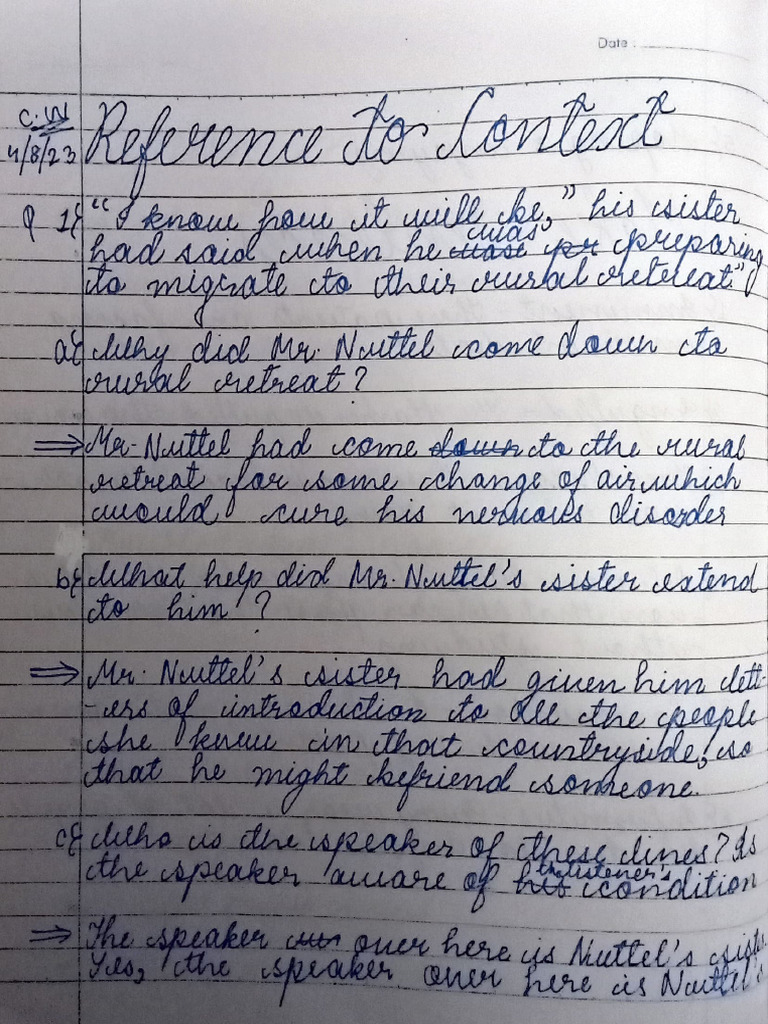 Date :
C.W
4/8/23
Reference to Context
Q 1} "I know how it will be," his sister
had said when he was preparing
to migrate to their rural retreat"
a} Why did Mr. Nuttel come down to
rural retreat?
⇒ Mr. Nuttel had come down to the rural
retreat for some change of air which
would cure his nervous disorder
b} What help did Mr. Nuttel's sister extend
to him ?
⇒ Mr. Nuttel's sister had given him lett-
-ers of introduction to all the people
she knew in that countryside, so
that he might befriend someone.
c} Who is the speaker of these lines? Is
the speaker aware of the listener's condition
⇒ The speaker over here is Nuttel's
Yes, the speaker over here is Nuttel's